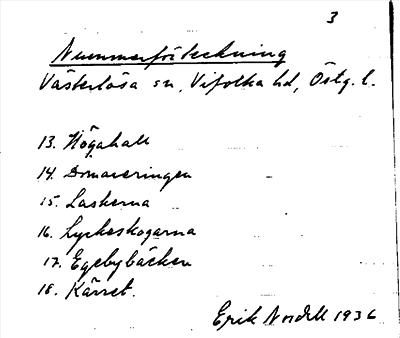 3
Nummerförteckning
Västerlösa sn, Vifolka hd, Östg. l.
13. Högahall
14. Domareringen
15. Laskerna
16. Lyckeskogarna
17. Egebybäcken
18. Kärret.
Erik Nordell 1936